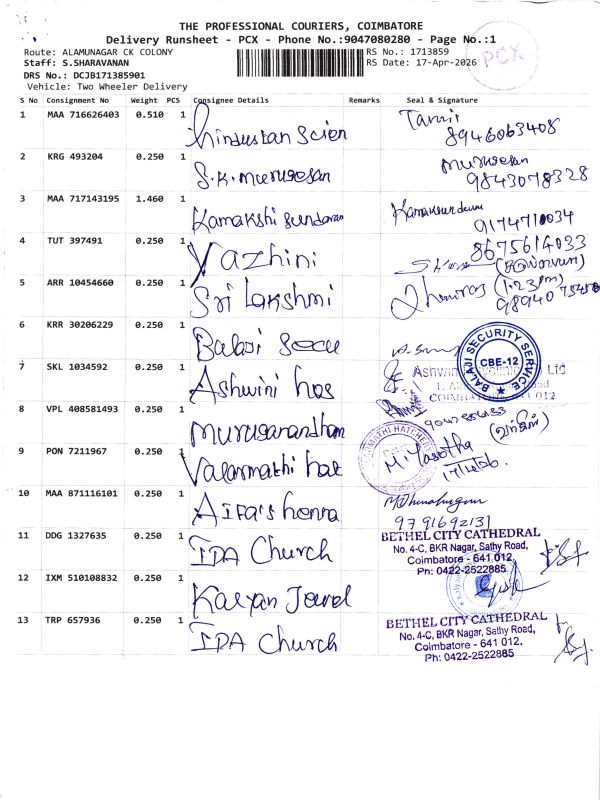 THE PROFESSIONAL COURIERS, COIMBATORE
Delivery Runsheet - PCX - Phone No.:9047080280 - Page No.:1
Route: ALAMUNAGAR CK COLONY
RS No.: 1713859
Staff: S.SHARAVANAN
RS Date: 17-Apr-2026
DRS No.: DCJB171385901
Vehicle: Two Wheeler Delivery
PCX
S No Consignment No Weight PCS Consignee Details Remarks Seal & Signature
1 MAA 716626403 0.510 1 Hindustan Scien
8946063408
2 KRG 493204 0.250 1 S.K. Murugesan Murugesan
9843078328
3 MAA 717143195 1.460 1 Kamakshi Sundaram
9174710034
4 TUT 397491 0.250 1 Yazhini 8675614033
5 ARR 10454660 0.250 1 Sri Lakshmi
(1.23pm)
6 KRR 30206229 0.250 1 Balaji Secu
BALAJI SECURITY SERVICE
CBE-12
7 SKL 1034592 0.250 1 Ashwini hos
8 VPL 408581493 0.250 1 Muruganandham
9 PON 7211967 0.250 1 Valarmathi hat
M. Yasotha
10 MAA 871116101 0.250 1
9791692131
11 DDG 1327635 0.250 1 IPA Church
BETHEL CITY CATHEDRAL
No. 4-C, BKR Nagar, Sathy Road,
Coimbatore - 641 012.
Ph: 0422-2522885
12 IXM 510108832 0.250 1 Kalyan Jewel
13 TRP 657936 0.250 1 IPA Church
BETHEL CITY CATHEDRAL
No. 4-C, BKR Nagar, Sathy Road,
Coimbatore - 641 012.
Ph: 0422-2522885